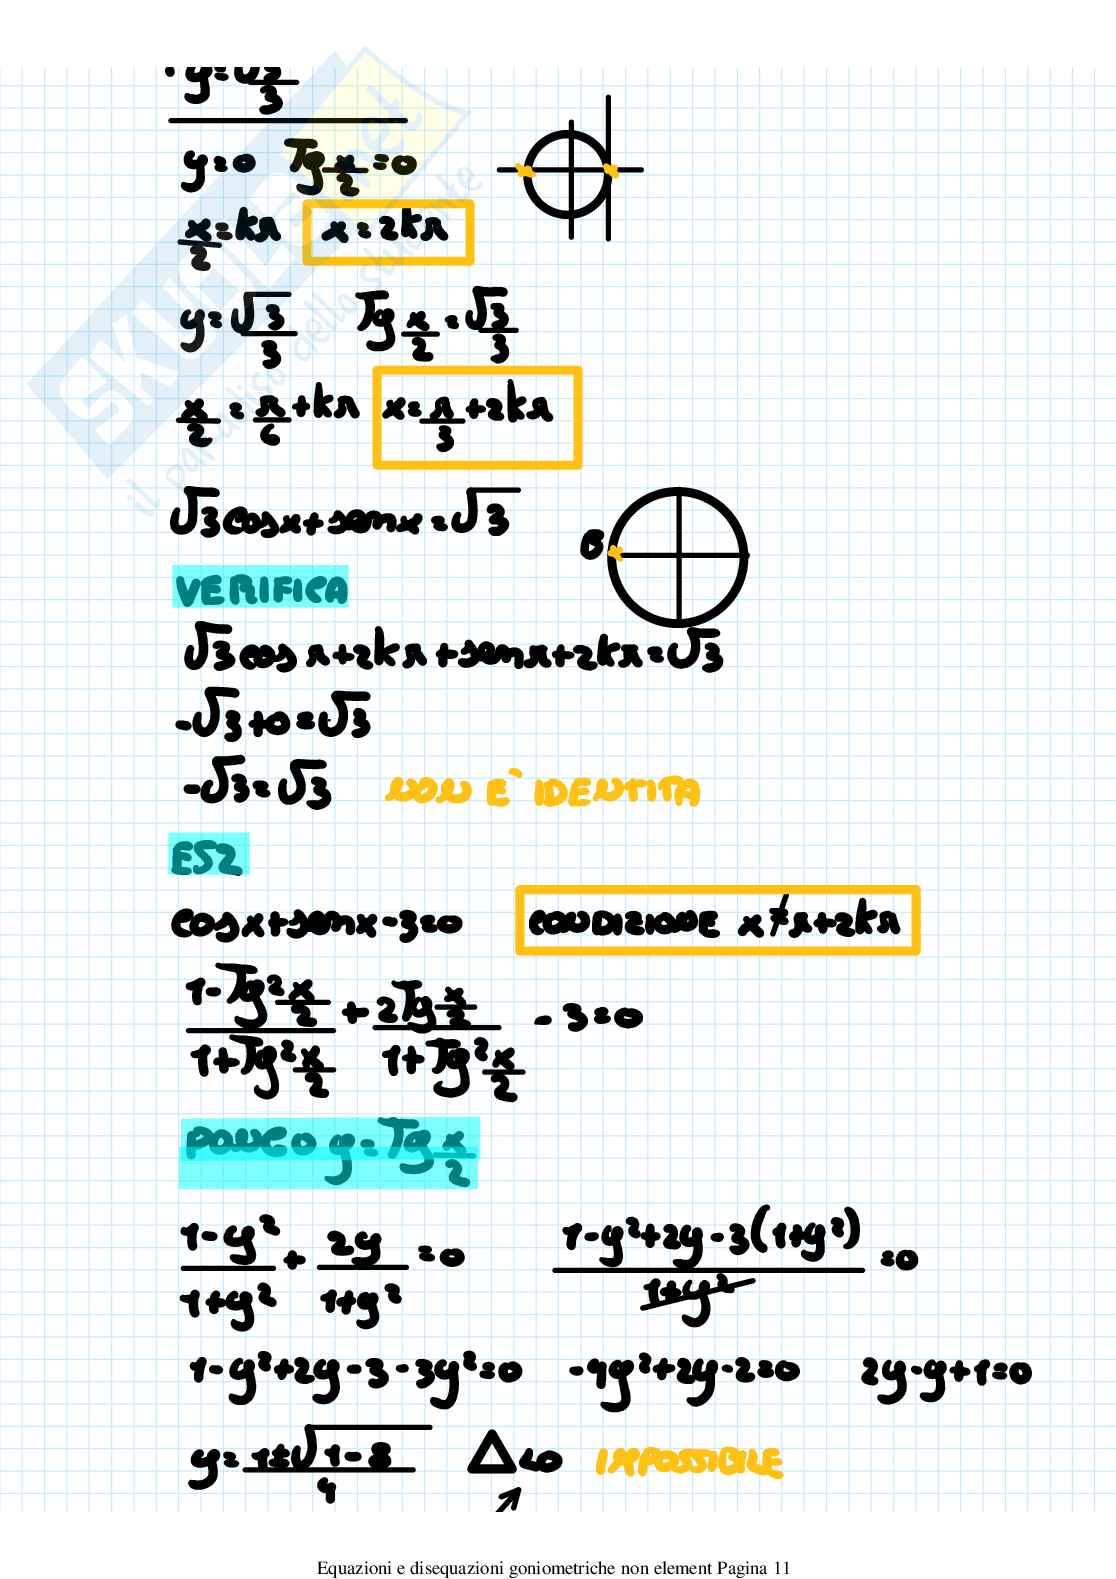 y=√3/3
y=0 Tg x/2=0
x/2=kπ x=2kπ
y=√3/3 Tg x/2=√3/3
x/2=π/6+kπ x=π/3+2kπ
√3cosx+senx=√3
B
VERIFICA
√3cos π+2kπ+senπ+2kπ=√3
-√3+0=√3
-√3=√3 NON E` IDENTITA
ES2
cosx+senx-3=0 CONDIZIONE x≠π+2kπ
1-Tg²x/2 / 1+Tg²x/2 + 2Tgx/2 / 1+Tg²x/2 -3=0
PONGO y=Tg x/2
1-y²/1+y² + 2y/1+y² =0 1-y²+2y-3(1+y²)/1+y² =0
1-y²+2y-3-3y²=0 -4y²+2y-2=0 2y-y+1=0
y=1±√1-8/4 Δ<0 IMPOSSIBILE
SKUOLA.net
il paradiso dello studente
Equazioni e disequazioni goniometriche non element Pagina 11